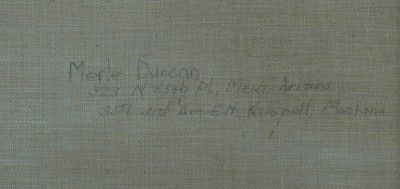 Merle Duncan
323 N 65th Pl., Mesa, Arizona
357 3rd Ave E.N. Kalispell, Montana